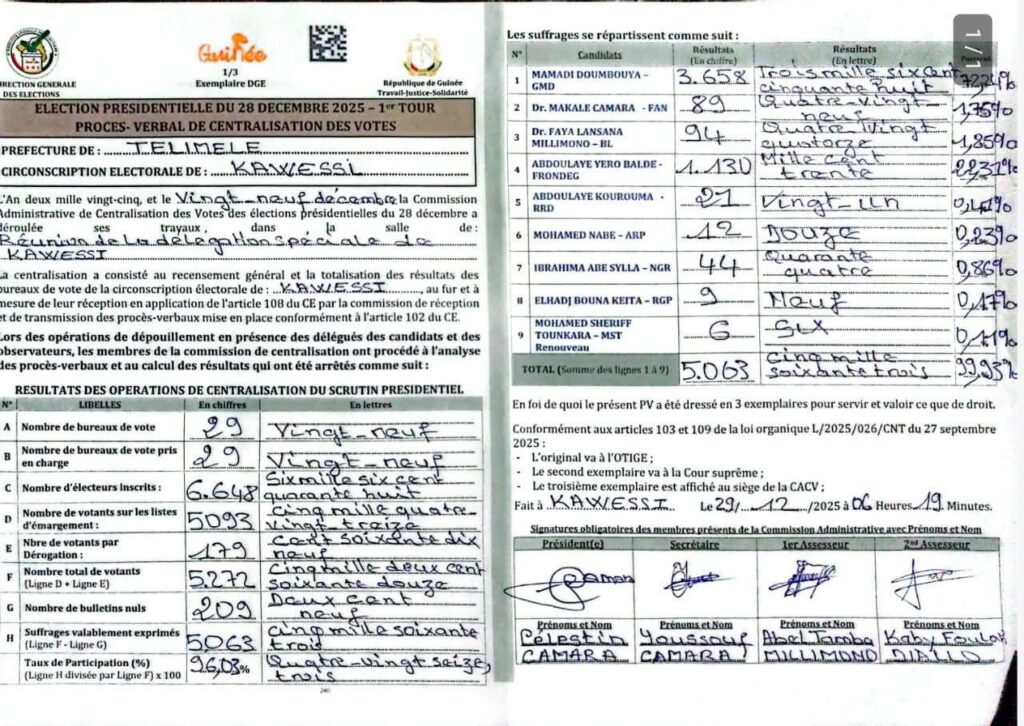 DIRECTION GENERALE
DES ELECTIONS
Guinée
1/3
Exemplaire DGE
République de Guinée
Travail-Justice-Solidarité
ELECTION PRESIDENTIELLE DU 28 DECEMBRE 2025 – 1er TOUR
PROCES- VERBAL DE CENTRALISATION DES VOTES
PREFECTURE DE : TELIMELE
CIRCONSCRIPTION ELECTORALE DE : KAWESSI
L'An deux mille vingt-cinq, et le Vingt-neuf décembre la Commission
Administrative de Centralisation des Votes des élections présidentielles du 28 décembre a
déroulée ses travaux, dans la salle de :
Réunion de la délégation spéciale de
KAWESSI
La centralisation a consisté au recensement général et la totalisation des résultats des
bureaux de vote de la circonscription électorale de : KAWESSI, au fur et à
mesure de leur réception en application de l'article 108 du CE par la commission de réception
et de transmission des procès-verbaux mise en place conformément à l'article 102 du CE.
Lors des opérations de dépouillement en présence des délégués des candidats et des
observateurs, les membres de la commission de centralisation ont procédé à l'analyse
des procès-verbaux et au calcul des résultats qui ont été arrêtés comme suit :
RESULTATS DES OPERATIONS DE CENTRALISATION DU SCRUTIN PRESIDENTIEL
N° LIBELLES En chiffres En lettres
A Nombre de bureaux de vote 29 Vingt-neuf
B Nombre de bureaux de vote pris
en charge 29 Vingt-neuf
C Nombre d'électeurs inscrits : 6.648 Six mille six cent
quarante huit
D Nombre de votants sur les listes
d'émargement : 5093 Cinq mille quatre-
vingt-treize
E Nbre de votants par
Dérogation : 179 Cent soixante dix
neuf
F Nombre total de votants
(Ligne D + Ligne E) 5.272 Cinq mille deux cent
soixante douze
G Nombre de bulletins nuls 209 Deux cent
neuf
H Suffrages valablement exprimés
(Ligne F - Ligne G) 5.063 cinq mille soixante
trois
Taux de Participation (%)
(Ligne H divisée par Ligne F) x 100 96,03% Quatre-vingt seize,
trois
240
1/1
Les suffrages se répartissent comme suit :
N° Candidats Résultats
(En chiffre) Résultats
(En lettre)
1 MAMADI DOUMBOUYA –
GMD 3.658 Trois mille six cent
cinquante huit
2 Dr. MAKALE CAMARA - FAN 89 Quatre-vingt-
neuf 1,75%
3 Dr. FAYA LANSANA
MILLIMONO – BL 94 Quatre vingt
quatorze 1,85%
4 ABDOULAYE YERO BALDE -
FRONDEG 1.130 Mille cent
trente 22,31%
5 ABDOULAYE KOUROUMA -
RRD 21 Vingt-un 0,41%
6 MOHAMED NABE – ARP 12 Douze 0,23%
7 IBRAHIMA ABE SYLLA – NGR 44 Quarante
quatre 0,86%
8 ELHADJ BOUNA KEITA – RGP 9 Neuf 0,17%
9 MOHAMED SHERIFF
TOUNKARA – MST
Renouveau 6 Six 0,11%
TOTAL (Somme des lignes 1 à 9) 5.063 Cinq mille
soixante trois 99,93%
En foi de quoi le présent PV a été dressé en 3 exemplaires pour servir et valoir ce que de droit.
Conformément aux articles 103 et 109 de la loi organique L/2025/026/CNT du 27 septembre
2025 :
- L'original va à l'OTIGE ;
- Le second exemplaire va à la Cour suprême ;
- Le troisième exemplaire est affiché au siège de la CACV ;
Fait à KAWESSI Le 29/12/2025 à 06 Heures 19 Minutes.
Signatures obligatoires des membres présents de la Commission Administrative avec Prénoms et Nom
Président(e) Secrétaire 1er Assesseur 2nd Assesseur
Prénoms et Nom Prénoms et Nom Prénoms et Nom Prénoms et Nom
Célestin Youssouf Abel Tamba Kaby Foulay
CAMARA CAMARA MILLIMONO DIALLO